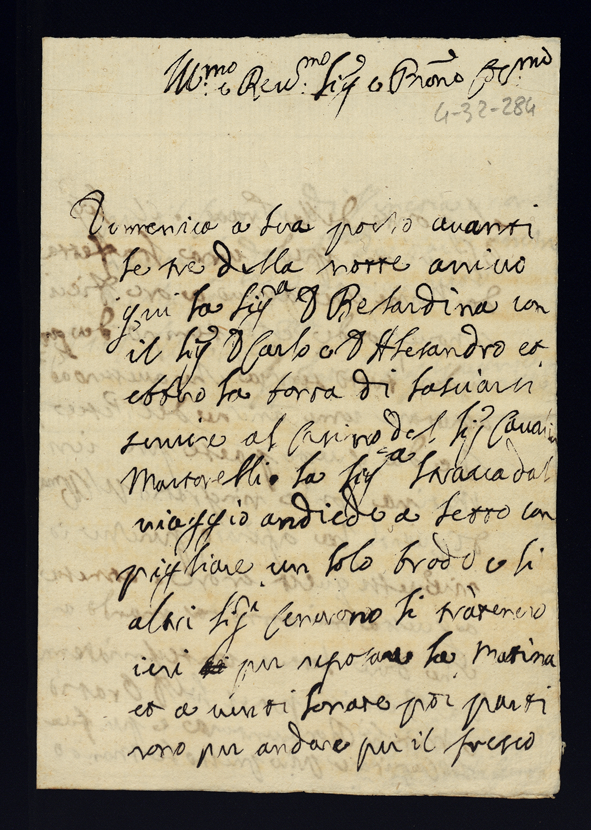 Ill.mo e Rev.mo Sig.r e Pron̄e Col.mo
4-32-284
Domenica a sera poccho avanti
le tre della notte arrivo
qui la Sig.a D Belardina con
il Sig.r D Carlo e D Alesandro et
ebbero la bontà di lasciarsi
servire al Casino del Sig.r Cavalie
Martorelli. la Sig.a stracca dal
viaggio andiede a letto con
pigliare un solo brodo e li
altri Sig.ri cenorono si tratenero
ieri per riposare la matina
et a vinti sonate poi parti
rono per andare per il fresco